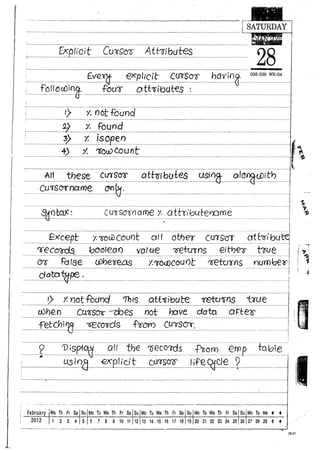 SATURDAY
28
028-338 WK-04
Explicit Cursor Attributes
Every explicit cursor having
following four attributes :
1) % not found
2) % found
3) % isopen
4) % rowcount
All these cursor attributes using alongwith
cursorname only.
Syntax: Cursorname % attributename
Except % rowcount all other cursor attribute
records boolean value returns either true
or false whereas %rowcount returns number
datatype.
1) % notfound This attribute returns true
when cursor does not have data after
fetching records from cursor.
Q Display all the records from emp table
using explicit cursor lifecycle ?
FEB
MAR
APR
February We Th Fr Sa Su Mo Tu We Th Fr Sa Su Mo Tu We Th Fr Sa Su Mo Tu We Th Fr Sa Su Mo Tu We
2012 1 2 3 4 5 6 7 8 9 10 11 12 13 14 15 16 17 18 19 20 21 22 23 24 25 26 27 28 29